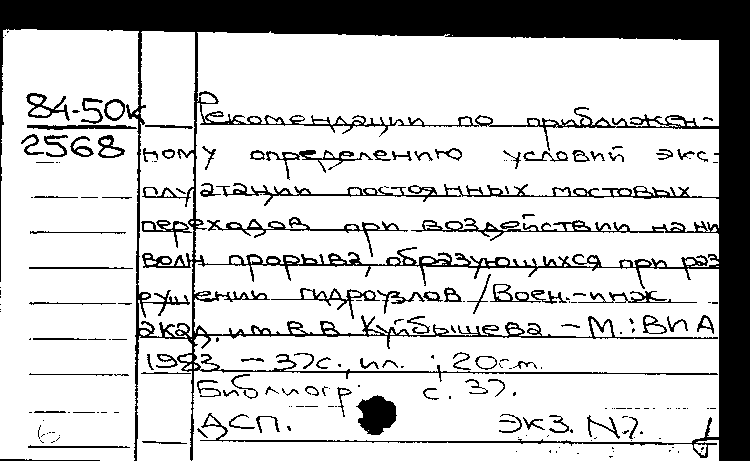 84-50к
2568
Рекомендации по приближен-
ному определению условий экс-
плуатации постоянных мостовых
переходов при воздействии на ни
волн прорыва, образующихся при раз
рушении гидроузлов / Воен.-инж.
акад. им. В.В. Куйбышева. - М.: ВИА
1983 - 37с., ил. ; 20см.
Библиогр: с. 37.
ДСП. ЭКЗ. №7.
6